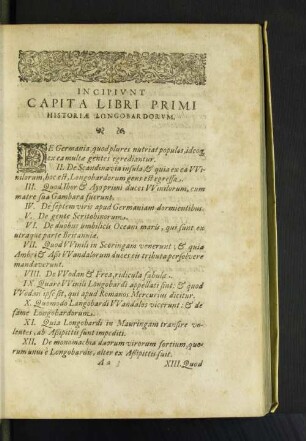 INCIPIVNT
CAPITA LIBRI PRIMI
HISTORIÆ LONGOBARDORVM.
DE Germania, quod plures nutriat populos, ideoq́;
ex ea multæ gentes egrediantur.
II. De Scandinavia insula, & quia ex ea VVi-
nilorum, hoc est, Longobardorum gens est egressa.
III. Quod Ibor & Ayo primi duces VVinilorum, cum
matre sua Gambara fuerunt.
IV. De septem viris apud Germaniam dormientibus.
V. De gente Scritobinorum.
VI. De duobus umbilicis Oceani maris, qui sunt ex
utraque parte Britannia.
VII. Quod VVinili in Scoringam venerunt, & quia
Ambri & Assi VVandalorum duces eis tributa persolvere
mandaverunt.
VIII. De VVodan & Frea, ridicula fabula.
IX. Quare VVinili Longobardi appellati sint, & quod
VVodan ipse sit, qui apud Romanos Mercurius dicitur.
X. Quomodo Longobardi VVandalos vicerunt, & de
fame Longobardorum.
XI. Quia Longobardi in Mauringam transire vo-
lentes, ab Assipittis sunt impediti.
XII. De monomachia duorum virorum fortium, quo-
rum unus è Longobardis, alter ex Assipittis fuit.
XIII. Quod